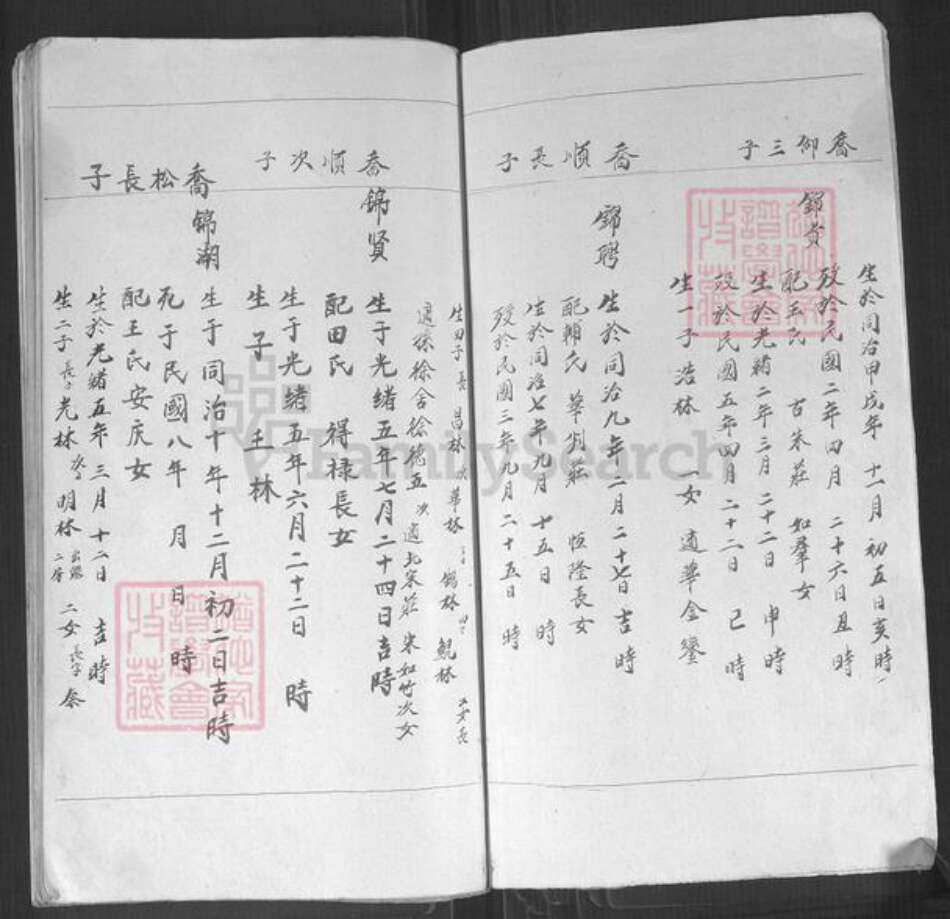 喬仰三子
錦貴
生於同治甲戌年 十一月 初五日亥時
歿於民國二年四月 二十六日丑時
配王氏 古朱莊 如羣女
生於光緒二年三月 二十二日 申時
歿於民國五年四月二十二日 巳時
生一子浩林 一女 適華金鑾
喬順長子
錦聘
生於同治九年二月二十七日吉時
配賴氏 華刘莊 恒隆長女
生於同治七年九月 十五日 時
歿於民國三年九月二十五日 時
生四子長昌林 次華林 三 錫林 四 鯤林 二女長
適孫徐舍徐德五 次適北宋莊 宋如竹次女
喬順次子
錦賢
生于光绪五年七月二十四日吉時
配田氏 得禄長女
生于光绪五年六月二十二日 時
生子玉林
喬松長子
錦湖
生于同治十年十二月初二日吉時
死于民國八年 月 日 時
配王氏安庆女
生於光緒五年三月十二日 吉時
生二子長子光林 次子明林 出嗣二房 二女長子秦
FamilySearch